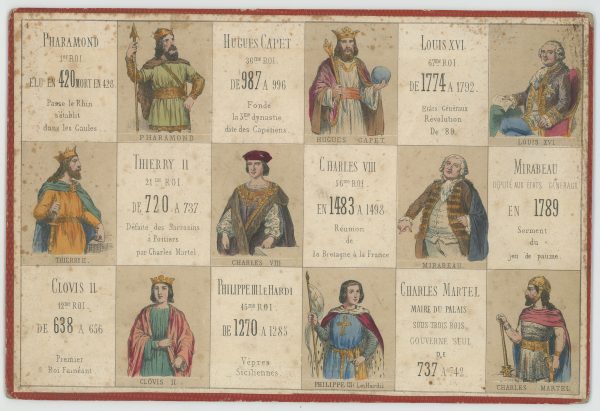 PHARAMOND
1er ROI
ELU EN 420 MORT EN 428
Passe le Rhin
s'établit
dans les Gaules.
PHARAMOND
HUGUES CAPET
36me ROI
DE 987 A 996
Fonde
la 3me dynastie
dite des Capétiens.
HUGUES CAPET
LOUIS XVI.
67me ROI
DE 1774 A 1792.
Etats Généraux
Révolution
De 89.
LOUIS XVI
THIERRY II.
THIERRY II
21me ROI
DE 720 A 737
Défaite des Sarrasins
à Poitiers
par Charles Martel.
CHARLES VIII
CHARLES VIII
56me ROI
EN 1483 A 1498
Réunion
de
la Bretagne à la France
MIRABEAU.
MIRABEAU
DÉPUTÉ AUX ÉTATS GÉNÉRAUX
EN 1789
Serment
du
jeu de paume.
CLOVIS II
12me ROI
DE 638 A 656
Premier
Roi Fainéant
CLOVIS II
PHILIPPE III LE HARDI
45me ROI
DE 1270 A 1285
Vêpres
Siciliennes.
PHILIPPE III Le Hardi
CHARLES MARTEL
MAIRE DU PALAIS
SOUS TROIS ROIS,
GOUVERNE SEUL
DE
737 A 742
CHARLES MARTEL